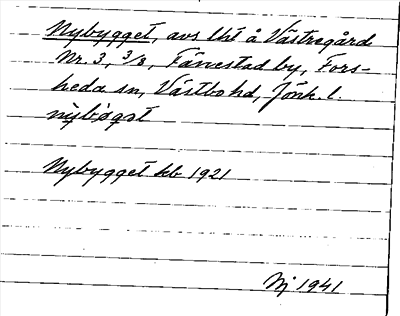 Nybygget, avs lht å Västregård
Nr. 3, 3/8, Fänestad by, Fors-
heda sn, Västbo hd, Jönk. l.
nybögət
Nybygget kb 1921
Nj 1941